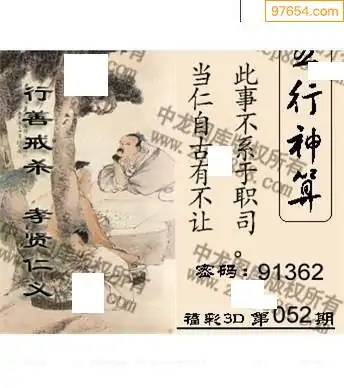 97654.com
行神算
此事不系于职司。
当仁自古有不让
行善戒杀 孝贤仁义
密码：91362
福彩3D 第052期
中龙图库版权所有
中龙图库版权所有